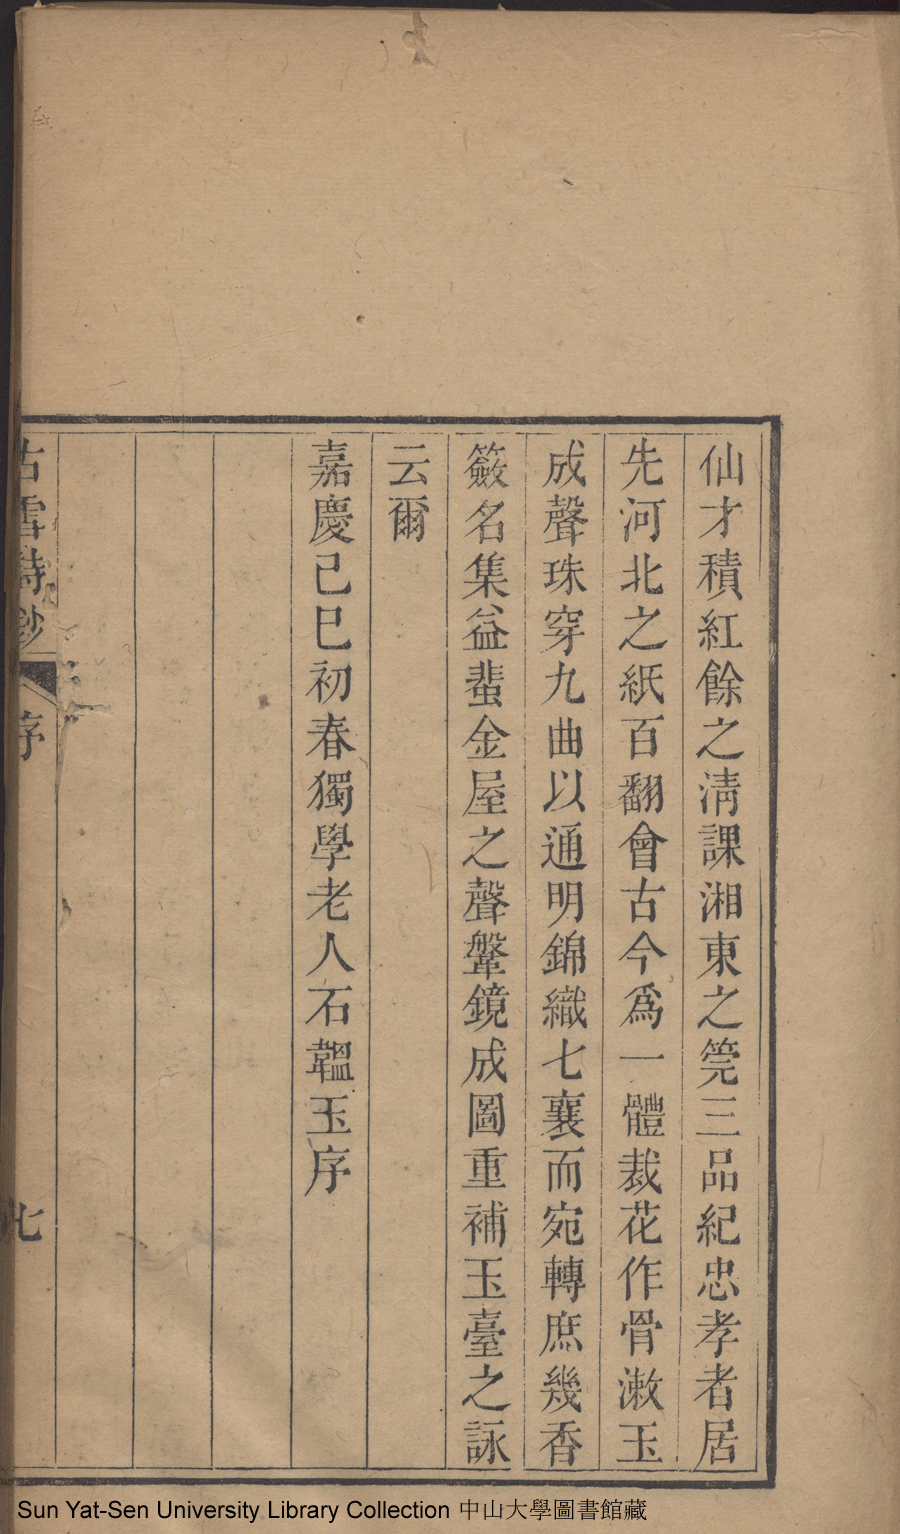 仙才積紅餘之淸課湘東之筦三品紀忠孝者居
先河北之紙百翻會古今爲一體裁花作骨漱玉
成聲珠穿九曲以通明錦織七襄而宛轉庶幾香
簽名集益蜚金屋之聲鞶鏡成圖重補玉臺之詠
云爾
嘉慶己巳初春獨學老人石韞玉序
古雪詩鈔 序 七
Sun Yat-Sen University Library Collection 中山大學圖書館藏